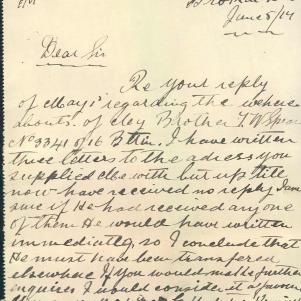 June 5/14
Dear Sir
Re your reply
of May 1st regarding the whereabouts
abouts. of My Brother T. W. Spen
No 3341 of 16 Bttn. I have written
three letters to the adress you
supplied else with but up till
now have received no reply I am
sure if He had received any one
of them He would have written
immediately, so I conclude that
He must have been transfered
elsewhere If you would make further
enquires I would consider it a favour